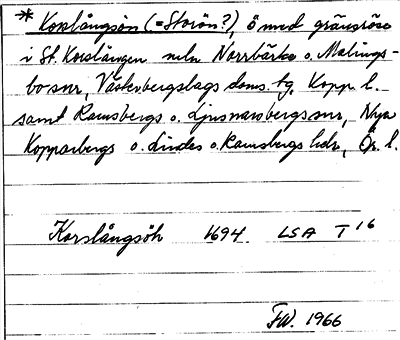 * Korslångsön (=Storön?), ö med gränsröse
i St. Korslången meln Norrbärke o. Malings-
bo snr, Västerbergslags doms. tg, Kopp. l.
samt Ramsbergs o. Ljusnarsbergs snr, Nya
Kopparbergs o. Lindes o. Ramsbergs hdr, Ör. l.
Korslångsöh 1694. LSA T 16
FW. 1966